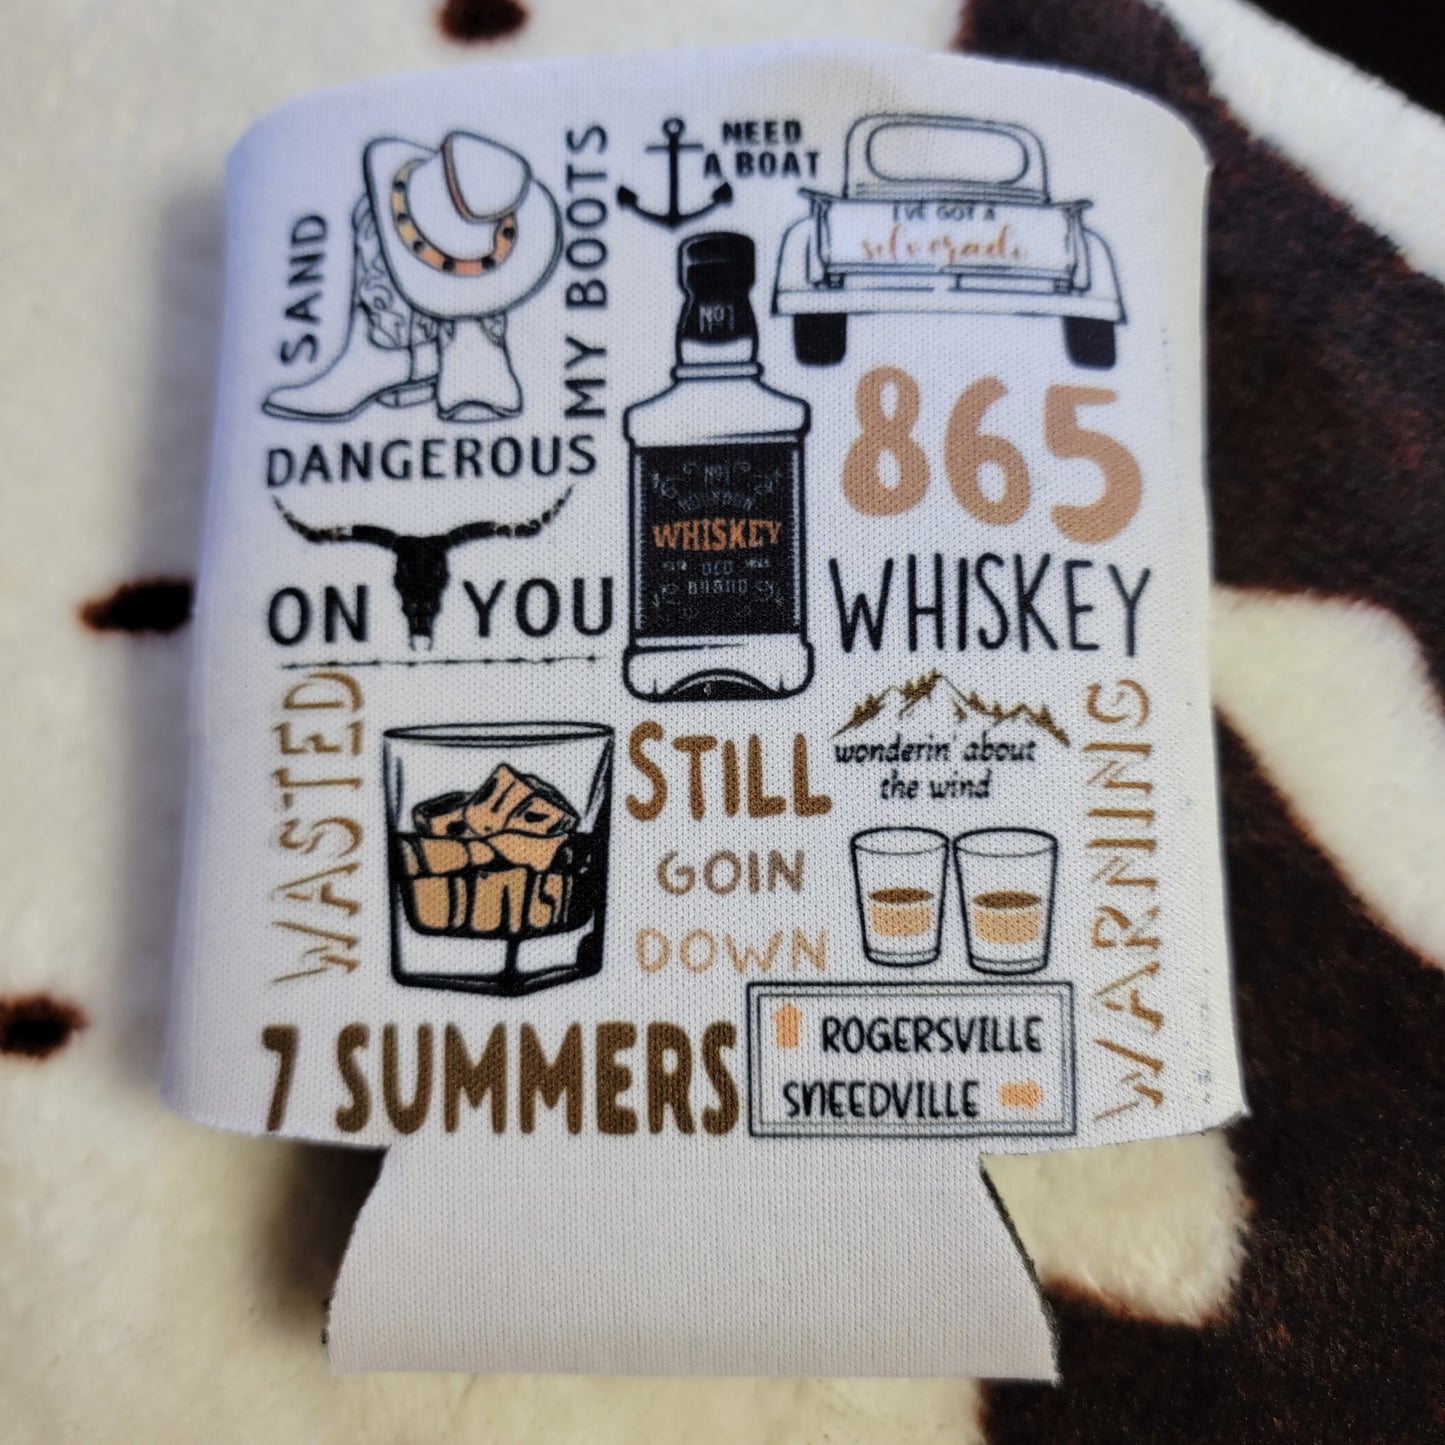 SAND
MY BOOTS
NEED
A BOAT
I'VE GOT A
silverado
DANGEROUS
No1
865
ON YOU
No1
BOURBON
WHISKEY
OLD
BRAND
WHISKEY
WASTED
STILL
GOIN
DOWN
wonderin' about
the wind
WARNING
7 SUMMERS
ROGERSVILLE
SNEEDVILLE